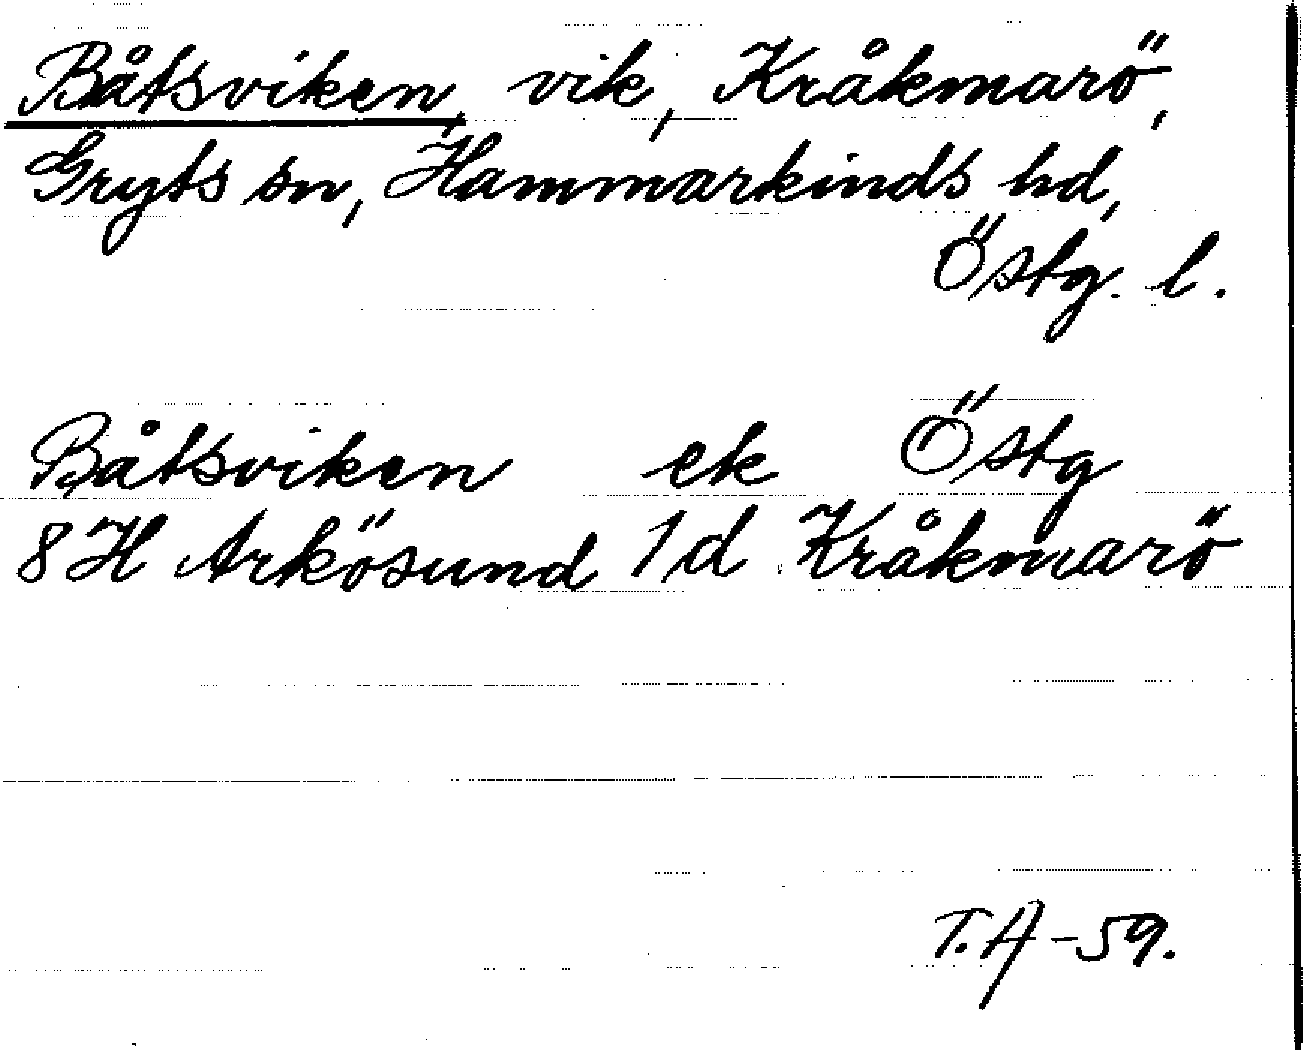 Båtsviken, vik, Kråkmarö,
Gryts sn, Hammarkinds hd,
Östg. l.
Båtsviken ek Östg
8H Arkösund 1d Kråkmarö
T.A -59.